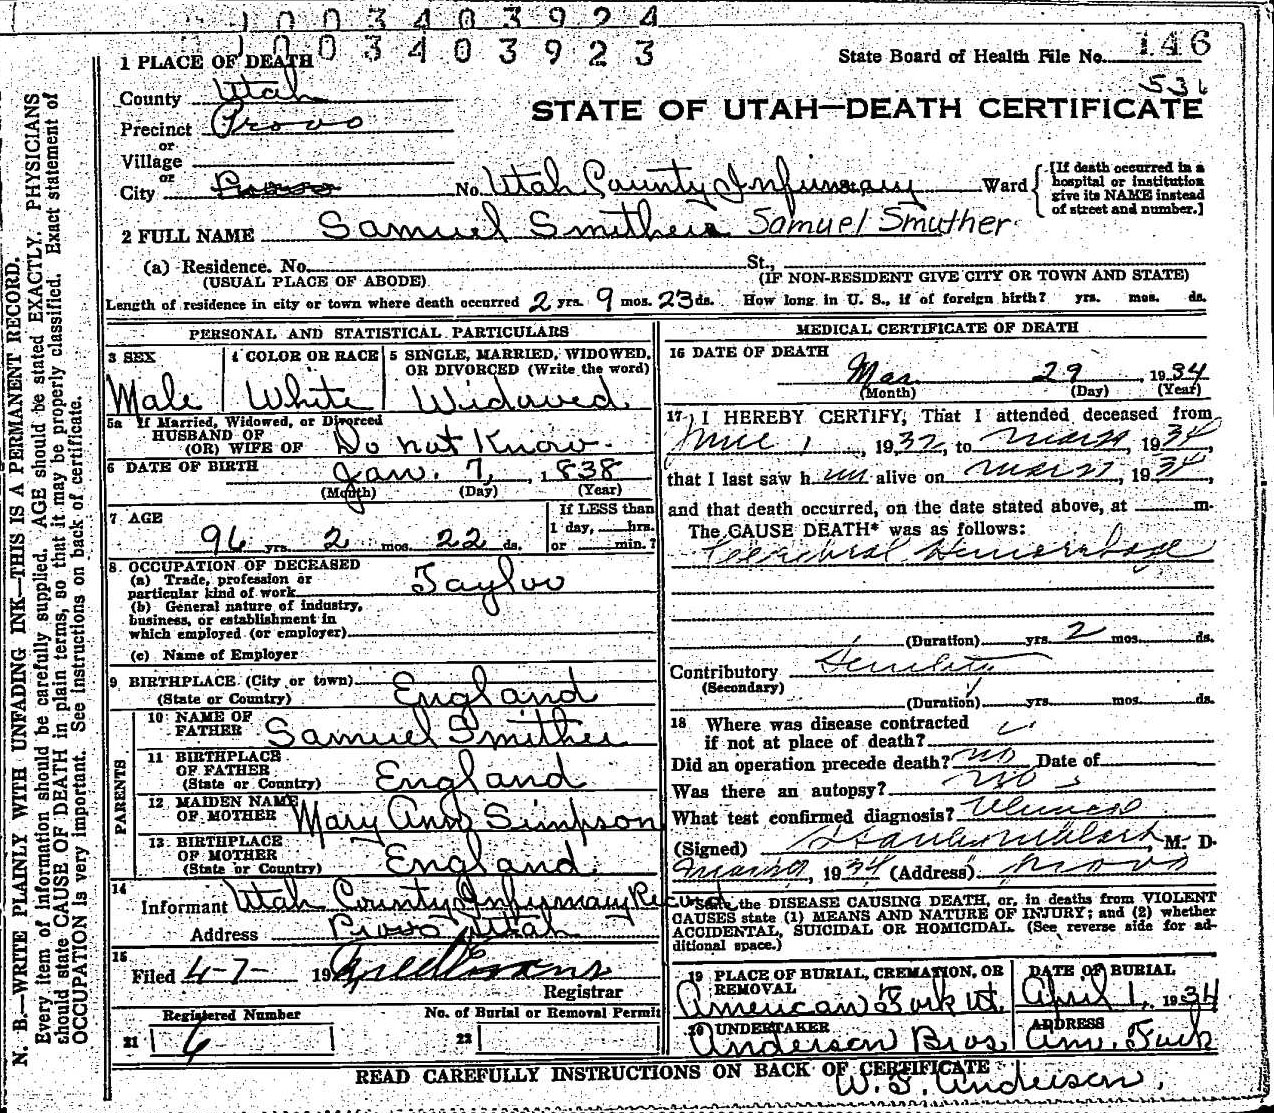 1003403924
1003403923
State Board of Health File No. 146
536
STATE OF UTAH—DEATH CERTIFICATE
1 PLACE OF DEATH
County Utah
Precinct Provo
or
Village
or
City Provo No. Utah County Infirmary Ward
[If death occurred in a hospital or institution give its NAME instead of street and number.]
2 FULL NAME Samuel Smithers Samuel Smuther
(a) Residence. No. St.,
(USUAL PLACE OF ABODE) (IF NON-RESIDENT GIVE CITY OR TOWN AND STATE)
Length of residence in city or town where death occurred 2 yrs. 9 mos. 23 ds. How long in U. S., if of foreign birth? yrs. mos. ds.
PERSONAL AND STATISTICAL PARTICULARS
3 SEX
Male
4 COLOR OR RACE
White
5 SINGLE, MARRIED, WIDOWED, OR DIVORCED (Write the word)
Widowed
5a If Married, Widowed, or Divorced
HUSBAND OF
(OR) WIFE OF Do not Know
6 DATE OF BIRTH Jan. 7, 1838
(Month) (Day) (Year)
7 AGE
96 yrs. 2 mos. 22 ds.
If LESS than
1 day, hrs.
or min.?
8. OCCUPATION OF DECEASED
(a) Trade, profession or
particular kind of work Taylor
(b) General nature of industry,
business, or establishment in
which employed (or employer)
(c) Name of Employer
9 BIRTHPLACE (City or town)
(State or Country) England
PARENTS
10 NAME OF
FATHER Samuel Smither
11 BIRTHPLACE
OF FATHER
(State or Country) England
12 MAIDEN NAME
OF MOTHER Mary Ann Simpson
13 BIRTHPLACE
OF MOTHER
(State or Country) England
14
Informant Utah County Infirmary Records
Address Provo Utah
15
Filed 4-7- 19
Registrar
Registered Number
21 6
No. of Burial or Removal Permit
22
MEDICAL CERTIFICATE OF DEATH
16 DATE OF DEATH
Mar 29, 1934
(Month) (Day) (Year)
17 I HEREBY CERTIFY, That I attended deceased from
June 1, 1932, to 1934,
that I last saw him alive on 1934,
and that death occurred, on the date stated above, at m.
The CAUSE DEATH* was as follows:
Cerebral Hemorrhage
(Duration) yrs. 2 mos. ds.
Contributory Senility
(Secondary)
(Duration) yrs. mos. ds.
18 Where was disease contracted
if not at place of death?
Did an operation precede death? no Date of
Was there an autopsy? no
What test confirmed diagnosis?
(Signed) M. D.
1934 (Address) Provo
*State the DISEASE CAUSING DEATH, or, in deaths from VIOLENT
CAUSES state (1) MEANS AND NATURE OF INJURY; and (2) whether
ACCIDENTAL, SUICIDAL OR HOMICIDAL. (See reverse side for ad-
ditional space.)
19 PLACE OF BURIAL, CREMATION, OR
REMOVAL
American Fork Ut.
DATE OF BURIAL
April 1, 1934
20 UNDERTAKER
Anderson Bros.
ADDRESS
Am. Fork
READ CAREFULLY INSTRUCTIONS ON BACK OF CERTIFICATE
W. Anderson.
N. B.—WRITE PLAINLY WITH UNFADING INK—THIS IS A PERMANENT RECORD.
Every item of information should be carefully supplied. AGE should be stated EXACTLY. PHYSICIANS
should state CAUSE OF DEATH in plain terms, so that it may be properly classified. Exact statement of
OCCUPATION is very important. See instructions on back of certificate.